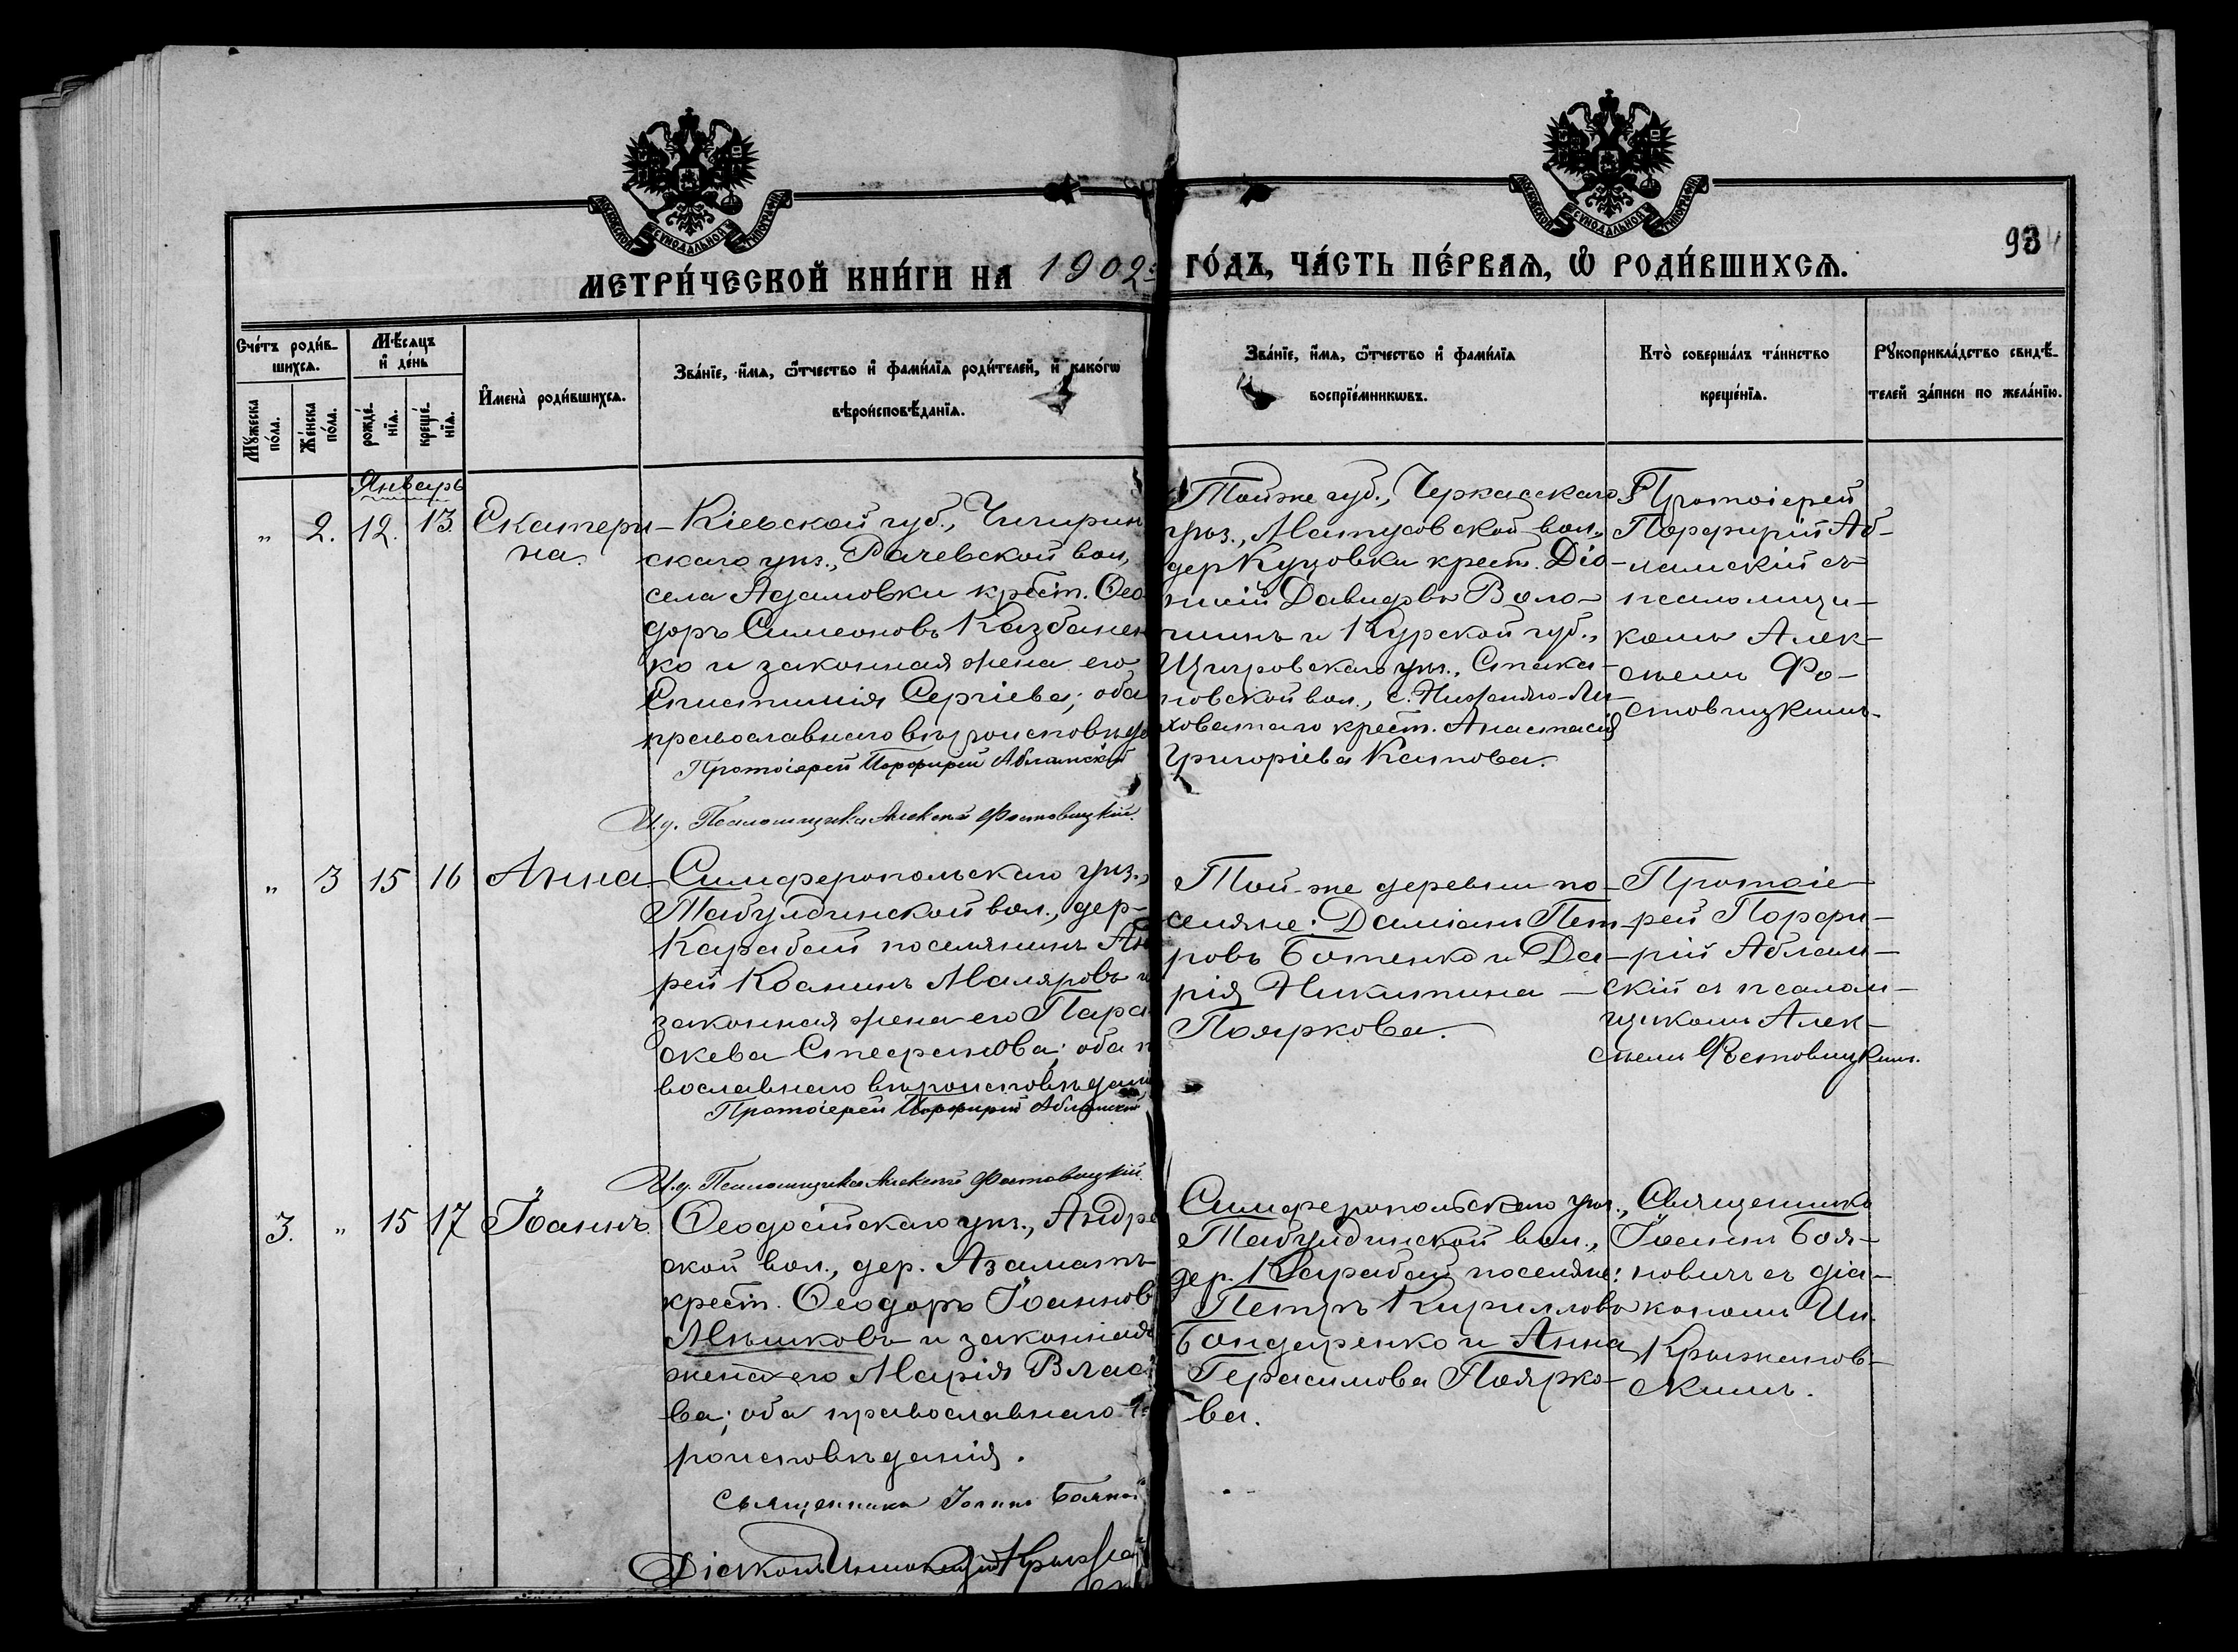 МОСКОВСКОЙ СѴНОДАЛЬНОЙ ТИПОГРАФІИ
МОСКОВСКОЙ СѴНОДАЛЬНОЙ ТИПОГРАФІИ
МЕТРИ́ЧЕСКОЙ КНИ́ГИ НА 1902й ГО́ДЪ, ЧА́СТЬ ПЕ́РВАѦ, Ѡ РОДИ́ВШИХСѦ.
93
Сче́тъ роди́в-
шихсѧ.
Мꙋ́жеска по́ла.
Же́нска по́ла.
Мѣ́сѧцъ и҆ де́нь
рожде́-нїѧ.
креще́-нїѧ.
И҆мена̀ роди́вшихсѧ.
Зва́нїе, и҆́мѧ, ѻ҆́тчество и҆ фами́лїѧ роди́телей, и҆ како́гѡ
вѣроисповѣ́данїѧ.
Зва́нїе, и҆́мѧ, ѻ҆́тчество и҆ фами́лїѧ
воспрїе́мникѡвъ.
Кто̀ соверша́лъ та́инство
креще́нїѧ.
Рꙋкоприкла́дство свидѣ́-
телей за́писи по жела́нїю.
Январь
" 2. 12. 13. Екатери-
на.
Кіевской губ., Чигирин
скаго уѣз., Рачевской вол.,
села Адамовки крест. Ѳео
доръ Симеоновъ Казбанен
ко и законная жена его
Епистимія Сергіева; оба
православнаго вѣроисповѣда
Протоіерей Порфирій Абламскій
И.д. Псаломщика Алексѣй Фостовицкій.
Той же губ., Черкасскаго
уѣз., Матусовской вол.,
дер Куцовки крест. Діо-
нисій Давидовъ Воло-
шинъ и Курской губ.,
Щигровскаго уѣз., Стака-
новской вол., с. Нижняго-Ли-
ховатаго крест. Анастасія
Григоріева Катова.
Протоіерей
Порфирій Аб-
ламскій съ
псаломщи-
комъ Алек-
сѣемъ Фо-
стовицкимъ.
" 3 15 16 Анна
Симферопольскаго уѣз.,
Табулдинской вол., дер-
Карабай поселянинъ Ан
рей Іоаннъ Маляровъ и
законная жена его Пара
скева Стефанова; оба п
вославнаго вѣроисповѣдані
Протоіерей Порфирій Абламскій
И.д. Псаломщика Алексѣй Фостовицкій.
Той-же деревни по-
селяне: Даміанъ Пет-
ровъБотенко и Да-
рія Никитина
Пояркова.
Протоіе-
рей Порфи-
рій Аблам-
скій съ псалом-
щикомъ Алек-
сѣемъ Фостовицкимъ.
3. " 15 17 Іоаннъ.
Ѳеодосійскаго уѣз., Андре
ской вол., дер. Азаматъ
крест. Ѳеодоръ Іоаннов
Мѣшковъ и законная
жена его Марія Влас
ва; оба православнаго вѣ
роисповѣданія.
Священникъ Іоаннъ Боянов
Діаконъ Иннокентій Крыжан
Симферопольскаго уѣз.,
Табулдинской вол.,
дер. Карабай поселяне:
Петръ Кирилловъ
Бондаренко и Анна
Герасимова Поярко-
ва.
Священникъ
Іоаннъ Боя-
новичъ съ діа-
кономъ Ин.
Крыжанов-
скимъ.